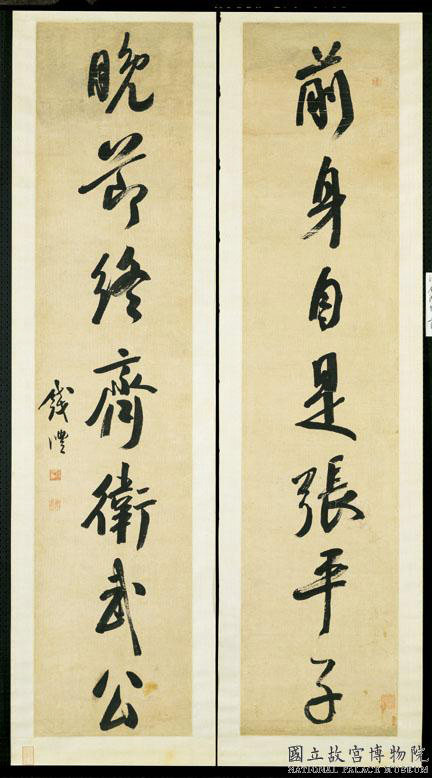 前身自是張平子
晚節終齊衛武公
錢灃
國立故宮博物院
NATIONAL PALACE MUSEUM